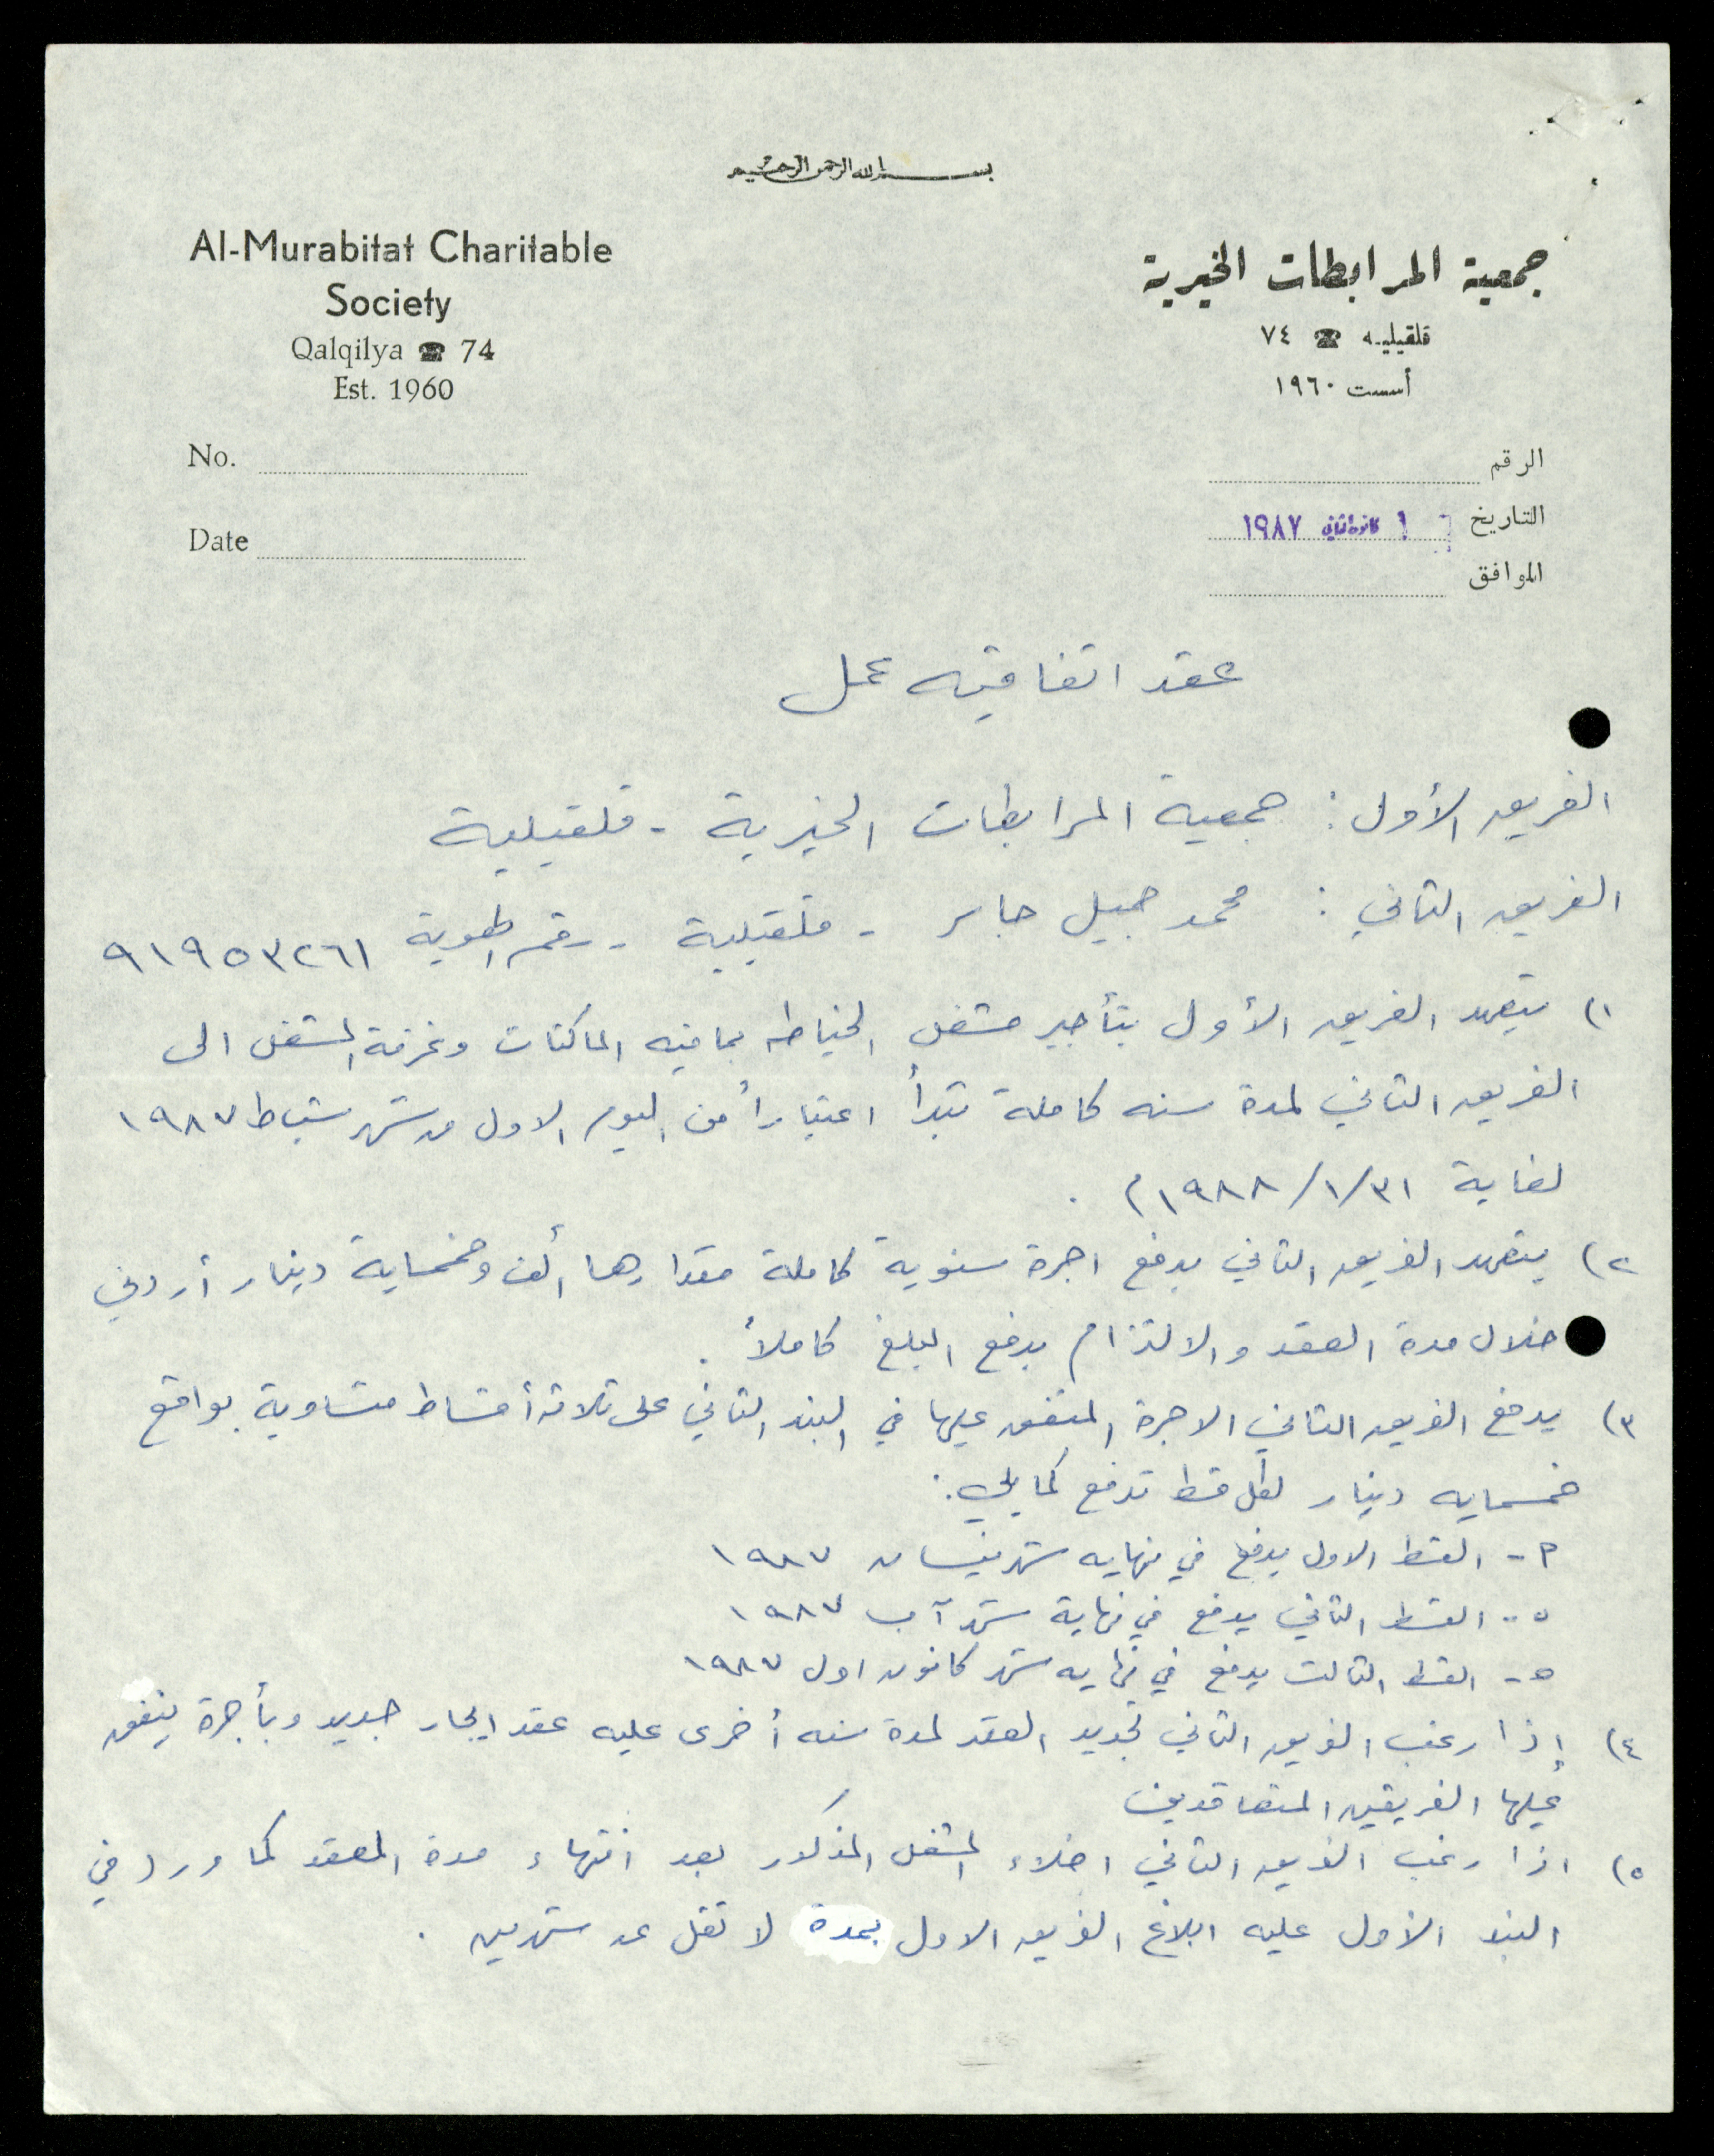 بسم الله الرحمن الرحيم
Al-Murabitat Charitable
Society
Qalqilya ☎ 74
Est. 1960
No.
Date
جمعية المرابطات الخيرية
قلقيليه ☎ ٧٤
أسست ١٩٦٠
الرقم
التاريخ ١ كانون الثاني ١٩٨٧
الموافق
عقد اتفاقيه عمل
الفريق الأول : جمعية المرابطات الخيرية - قلقيلية
الفريق الثاني : محمد جميل جابر - قلقيلية - رقم الهوية ٩١٩٥٣٢٦١
١) يتعهد الفريق الأول بتأجير مشغل الخياطه بما فيه الماكنات وغرفة المشغل الى
الفريق الثاني لمدة سنه كاملة تبدأ اعتباراً من اليوم الاول من شهر شباط ١٩٨٧
لغاية ٣١/١/١٩٨٨م .
٢) يتعهد الفريق الثاني بدفع اجرة سنوية كاملة مقدارها ألف وخمسماية دينار أردني
خلال مدة العقد والالتزام بدفع المبلغ كاملاً .
٣) يدفع الفريق الثاني الاجرة المتفق عليها في البند الثاني على ثلاثة أقساط متساوية بواقع
خمسمايه دينار لكل قسط تدفع كما يلي :
٢- القسط الاول يدفع في نهايه شهر نيسان ١٩٨٧
- القسط الثاني يدفع في نهاية شهر آب ١٩٨٧
- القسط الثالث يدفع في نهايه شهر كانون اول ١٩٨٧
٤) إذا رغب الفريق الثاني تجديد العقد لمدة سنه أخرى عليه عقد ايجار جديد وبأجرة يتفق
عليها الفريقين المتعاقدين
٥) اذا رغب الفريق الثاني اخلاء المشغل المذكور بعد انتهاء مدة العقد كما ورد في
البند الأول عليه ابلاغ الفريق الاول بمدة لا تقل عن شهرين .